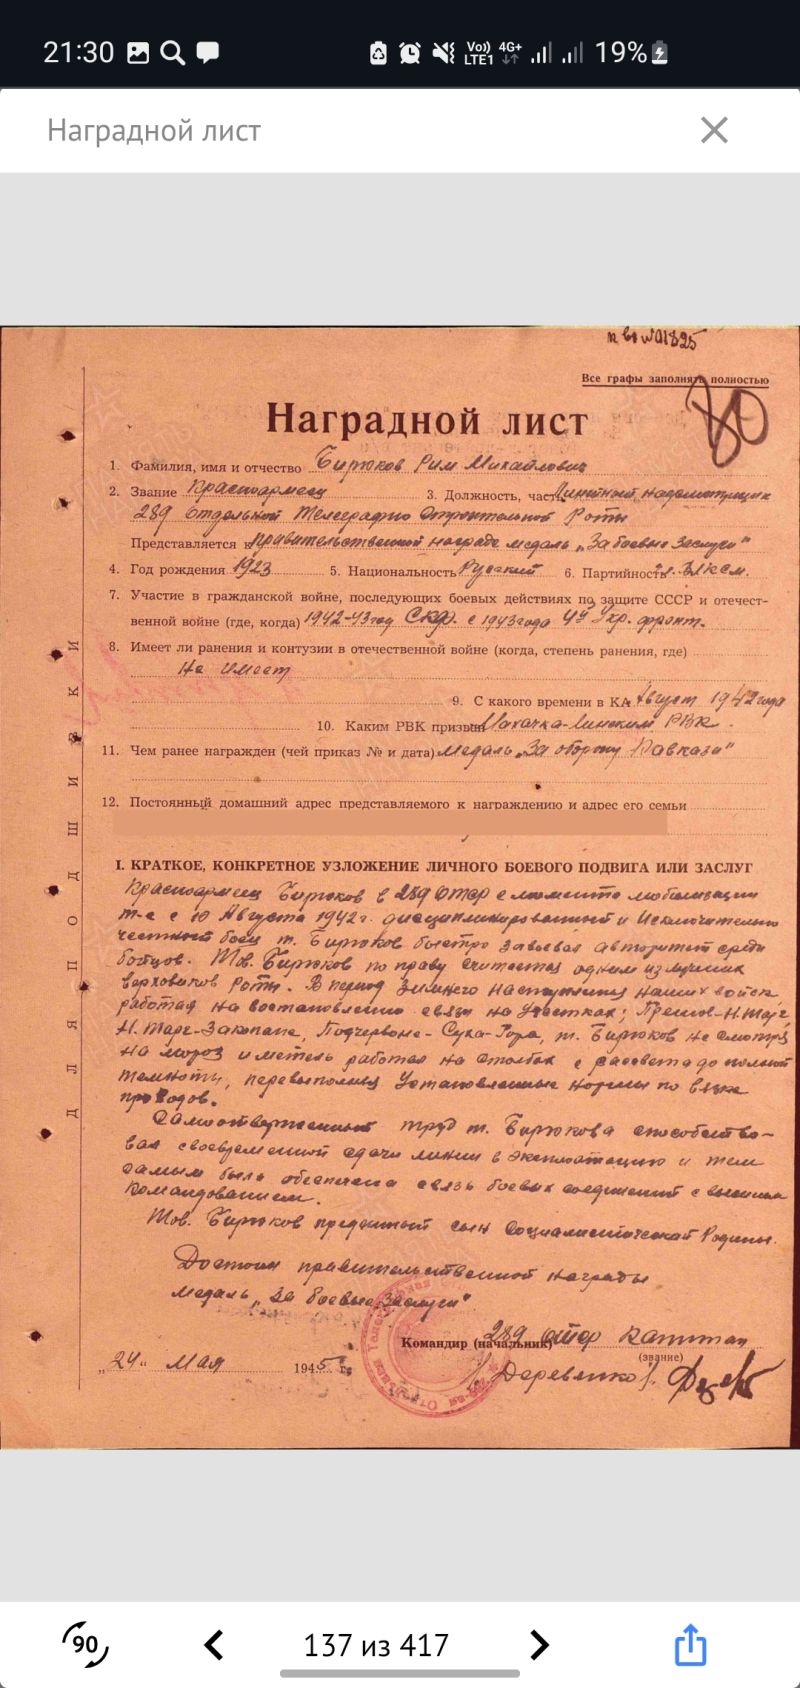 21:30
Vo)) LTE1 4G+ 19%
Наградной лист
Все графы заполнять полностью
80
Наградной лист
1. Фамилия, имя и отчество Бирюков Рим Михайлович
2. Звание Красноармеец 3. Должность, часть Линейный надсмотрщик
289 Отдельной Телеграфно Строительной Роты
Представляется к правительственной награде медаль „За боевые заслуги"
4. Год рождения 1923 5. Национальность Русский 6. Партийность ВЛКСМ.
7. Участие в гражданской войне, последующих боевых действиях по защите СССР и отечест-
венной войне (где, когда) 1942-43 год СКФ. с 1943 года 4й Укр. фронт.
8. Имеет ли ранения и контузии в отечественной войне (когда, степень ранения, где)
Не имеет
9. С какого времени в КА Август 1942 года
10. Каким РВК призван Махачка-линским РВК.
11. Чем ранее награжден (чей приказ № и дата) Медаль „За оборону Кавказа"
12. Постоянный домашний адрес представляемого к награждению и адрес его семьи
ДЛЯ ПОДШИВКИ
I. КРАТКОЕ, КОНКРЕТНОЕ УЗЛОЖЕНИЕ ЛИЧНОГО БОЕВОГО ПОДВИГА ИЛИ ЗАСЛУГ
Красноармеец Бирюков в 289 ОТСР с момента мобилизации
т-е с 10 Августа 1942 г. дисциплинированный и исключительно
честный боец т. Бирюков быстро завоевал авторитет среди
бойцов. Тов. Бирюков по праву считается одним из лучших
верховиков роты. В период зимнего наступления наших войск
работая на востановлению связи на участках: Прешов-Н.Тарг
Н.Тарг-Закопане, Подчервоне-Суха-Гора, т. Бирюков не смотря
на мороз и метель работал на столбах с рассвета до полной
темноты, перевыполняя установленные нормы по вязке
проводов.
Самоотверженный труд т. Бирюкова способство-
вал своевременной сдачи линии в эксплоатацию и тем
самым была обеспечена связь боевых соединений с высшим
командованием.
Тов. Бирюков преданный сын Социалистической Родины.
Достоин правительственной награды
медаль „За боевые заслуги"
Командир (начальник) 289 ОТСР капитан
(звание)
„24" мая 1945 г.
Деревянко
90
137 из 417